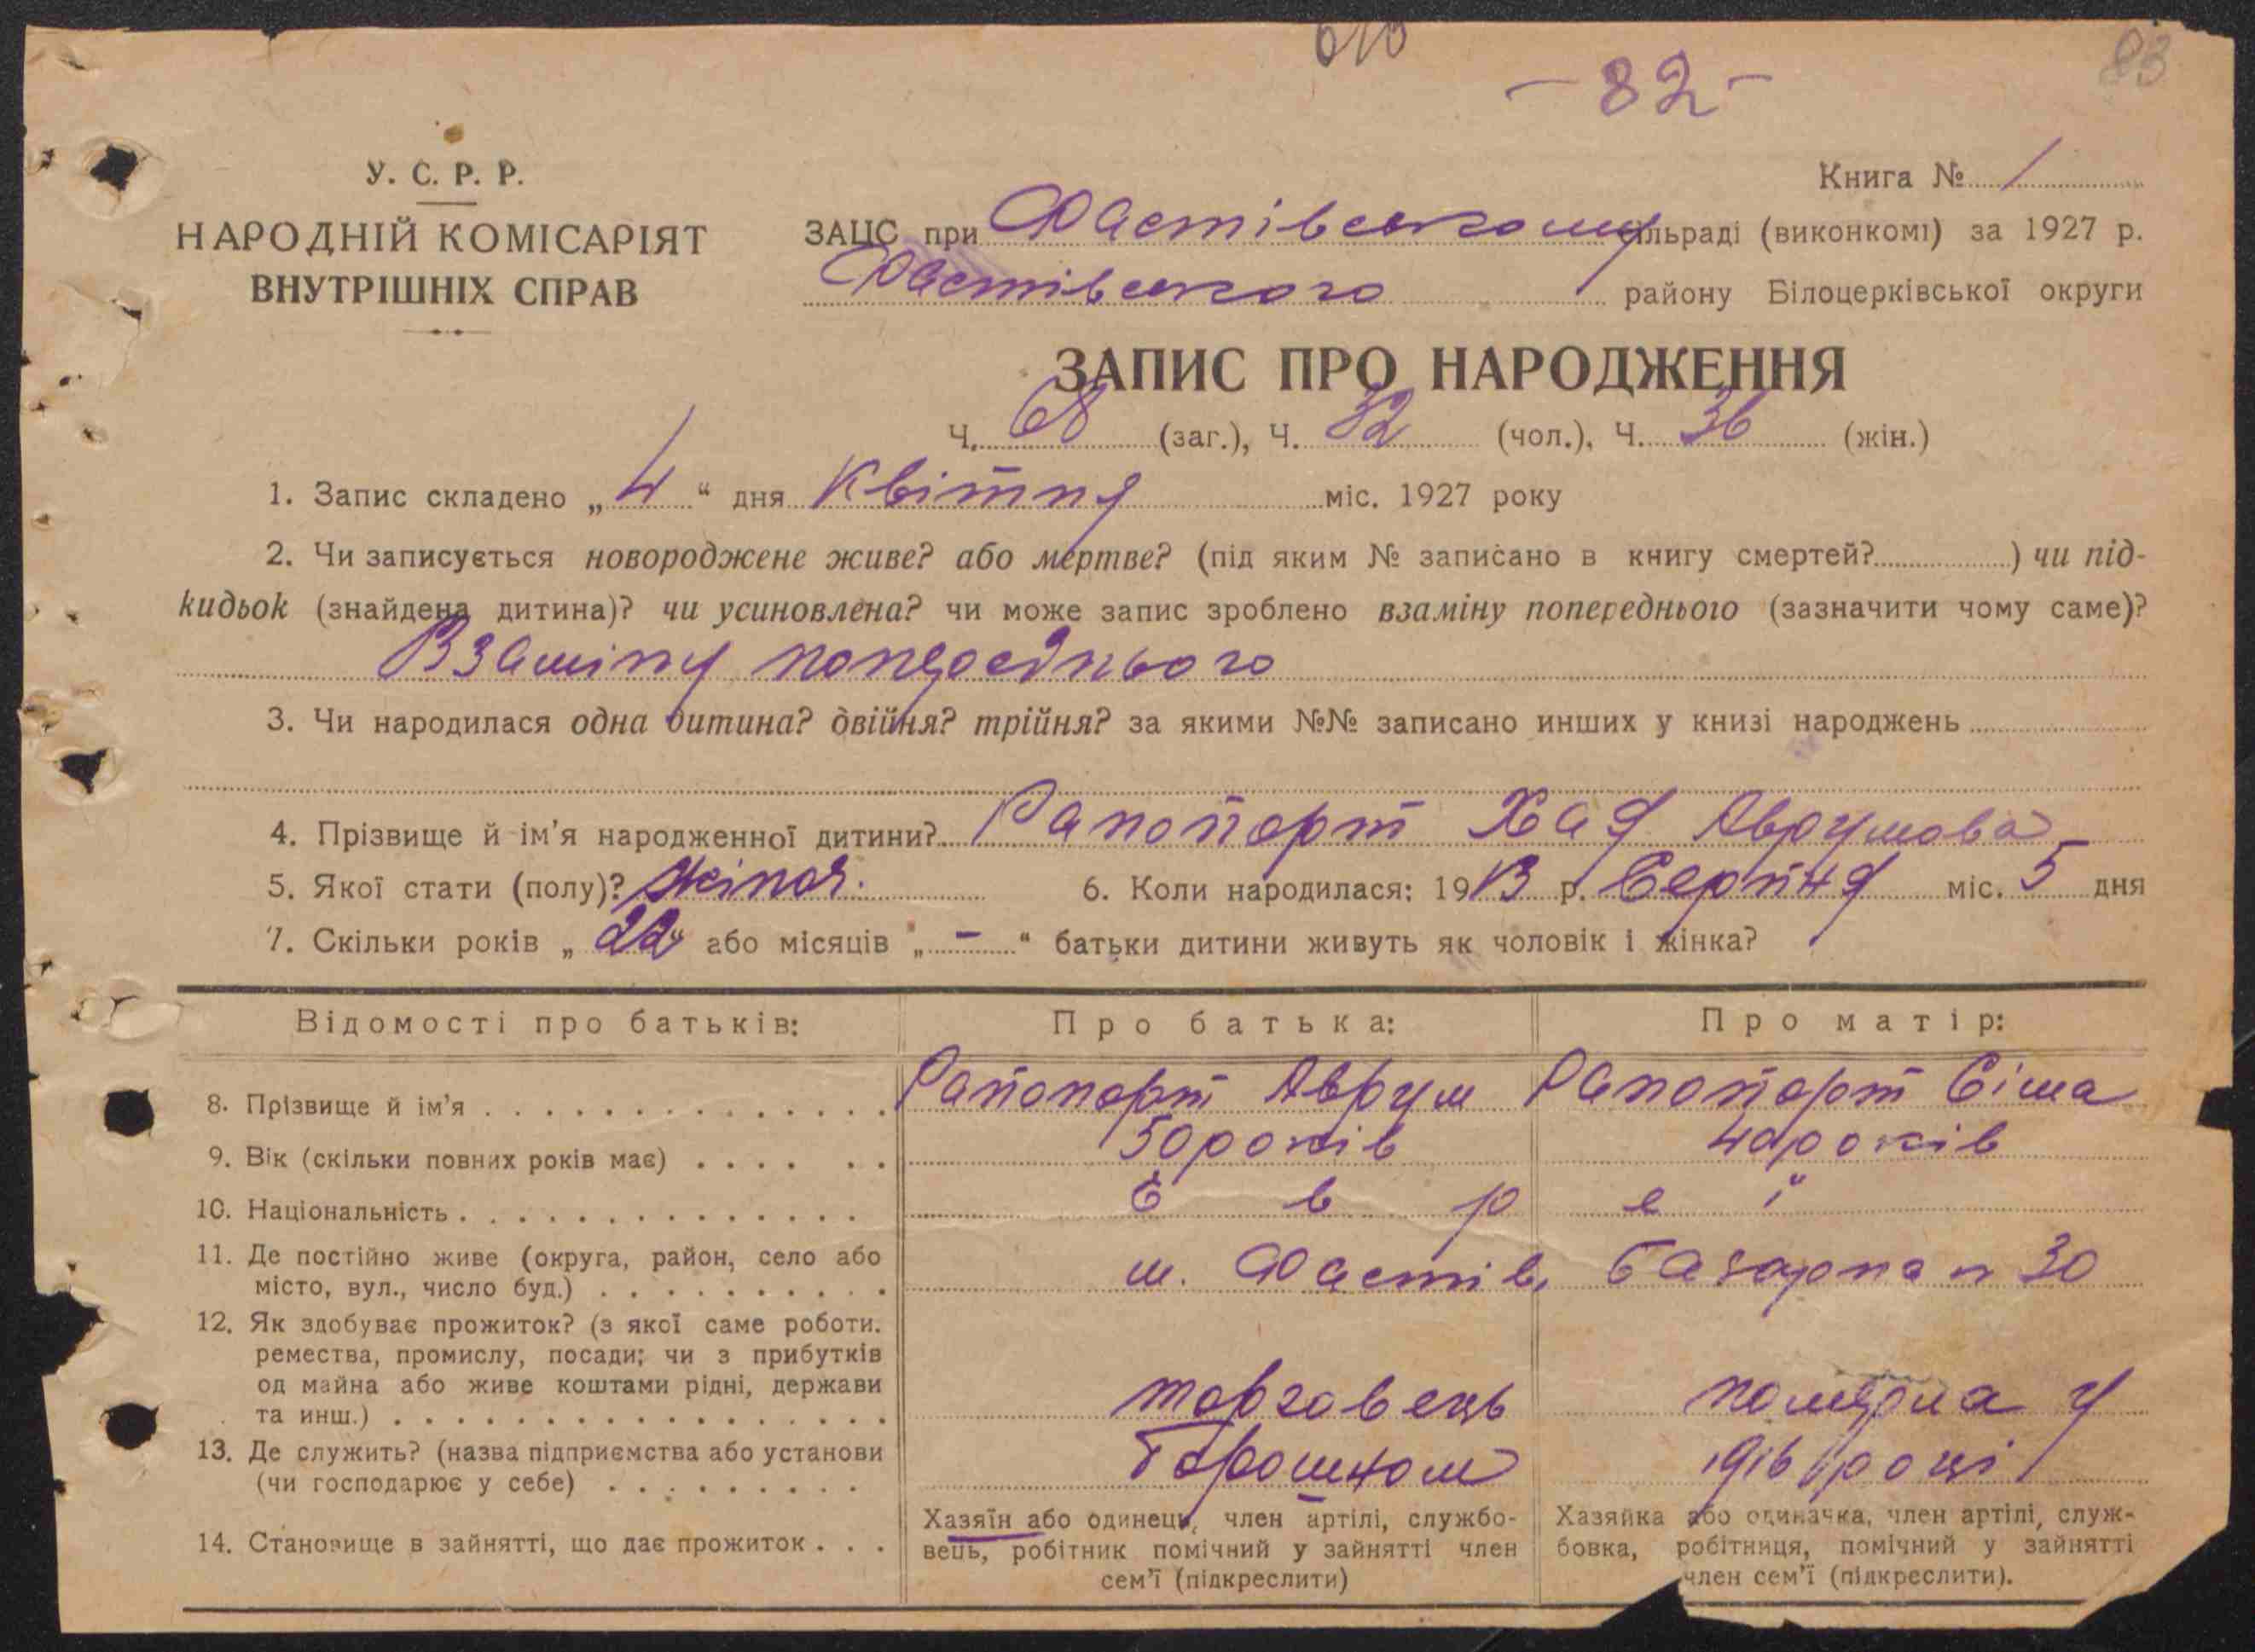 - 82 -
83
У. С. Р. Р.
НАРОДНІЙ КОМІСАРІЯТ
ВНУТРІШНІХ СПРАВ
Книга № 1
ЗАЦС при Фастівському сільраді (виконкомі) за 1927 р.
Фастівського району Білоцерківської округи
ЗАПИС ПРО НАРОДЖЕННЯ
Ч. 68 (заг.), Ч. 32 (чол.), Ч. 36 (жін.)
1. Запис складено „ 4 “ дня Квітня міс. 1927 року
2. Чи записується новороджене живе? або мертве? (під яким № записано в книгу смертей? ) чи під-
кидьок (знайдена дитина)? чи усиновлена? чи може запис зроблено взаміну попереднього (зазначити чому саме)?
Взаміну попереднього
3. Чи народилася одна дитина? двійня? трійня? за якими №№ записано инших у книзі народжень
4. Прізвище й ім’я народженної дитини? Рапопорт Хая Аврумова
5. Якої стати (полу)? жіноч. 6. Коли народилася: 1913 р. Серпня міс. 5 дня
7. Скільки років „ 22 “ або місяців „ - “ батьки дитини живуть як чоловік і жінка?
Відомості про батьків: Про батька: Про матір:
8. Прізвище й ім’я Рапопорт Аврум Рапопорт Сіма
9. Вік (скільки повних років має) 50 років 40 років
10. Національність Евреї
11. Де постійно живе (округа, район, село або
місто, вул., число буд.) м. Фастів, Базарна № 30
12. Як здобуває прожиток? (з якої саме роботи.
ремества, промислу, посади; чи з прибутків
од майна або живе коштами рідні, держави
та инш.) торговець померла у
13. Де служить? (назва підприємства або установи
(чи господарює у себе) Борошном 1916 році
14. Становище в зайнятті, що дає прожиток . . .
Хазяїн або одинець, член артілі, службо-
вець, робітник помічний у зайнятті член
сем’ї (підкреслити)
Хазяйка або одиначка, член артілі, служ-
бовка, робітниця, помічний у зайнятті
член сем’ї (підкреслити).